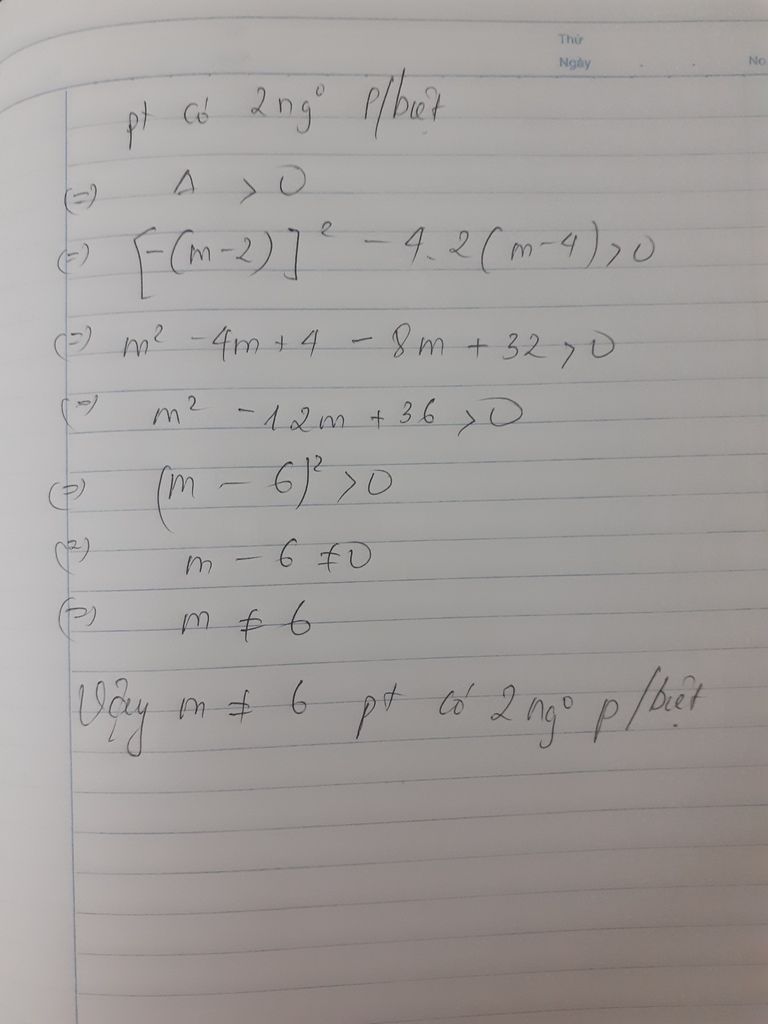 Thứ
Ngày . . No
pt có 2 ngº p/biệt
(=) Δ > 0
(=) [-(m-2)]² - 4.2(m-4) > 0
(=) m² - 4m + 4 - 8m + 32 > 0
(=) m² - 12m + 36 > 0
(=) (m - 6)² > 0
(=) m - 6 ≠ 0
(=) m ≠ 6
Vậy m ≠ 6 pt có 2 ngº p/biệt